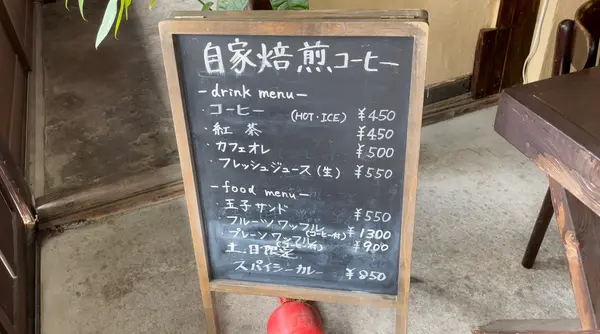 自家焙煎コーヒー
-drink menu-
・コーヒー (HOT・ICE) ¥450
・紅茶 ¥450
・カフェオレ ¥500
・フレッシュジュース(生) ¥550
-food menu-
・玉子サンド ¥550
・フルーツワッフル(コーヒー付) ¥1300
・プレーンワッフル(コーヒー付) ¥900
土.日限定
スパイシーカレー ¥850